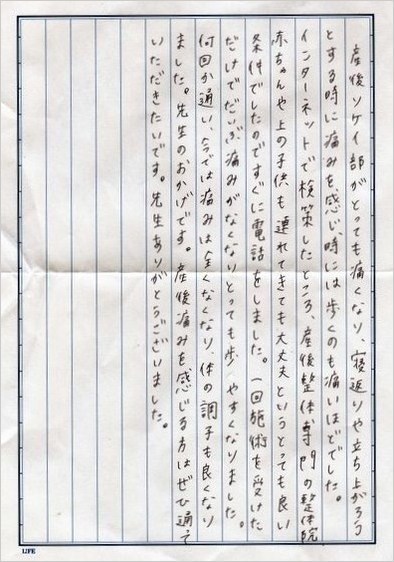 産後ソケイ部がとっても痛くなり、寝返りや立ち上がろう
とする時に痛みを感じ、時には歩くのも痛いほどでした。
インターネットで検策したところ、産後整体専門の整体院
赤ちゃんや上の子供も連れてきても大丈夫というとっても良い
条件でしたのですぐに電話をしました。一回施術を受けた
だけでだいぶ痛みがなくなりとっても歩きやすくなりました。
何回か通い、今では痛みは全くなくなり、体の調子も良くなり
ました。先生のおかげです。産後痛みを感じる方はぜひ通って
いただきたいです。先生ありがとうございました。
LIFE